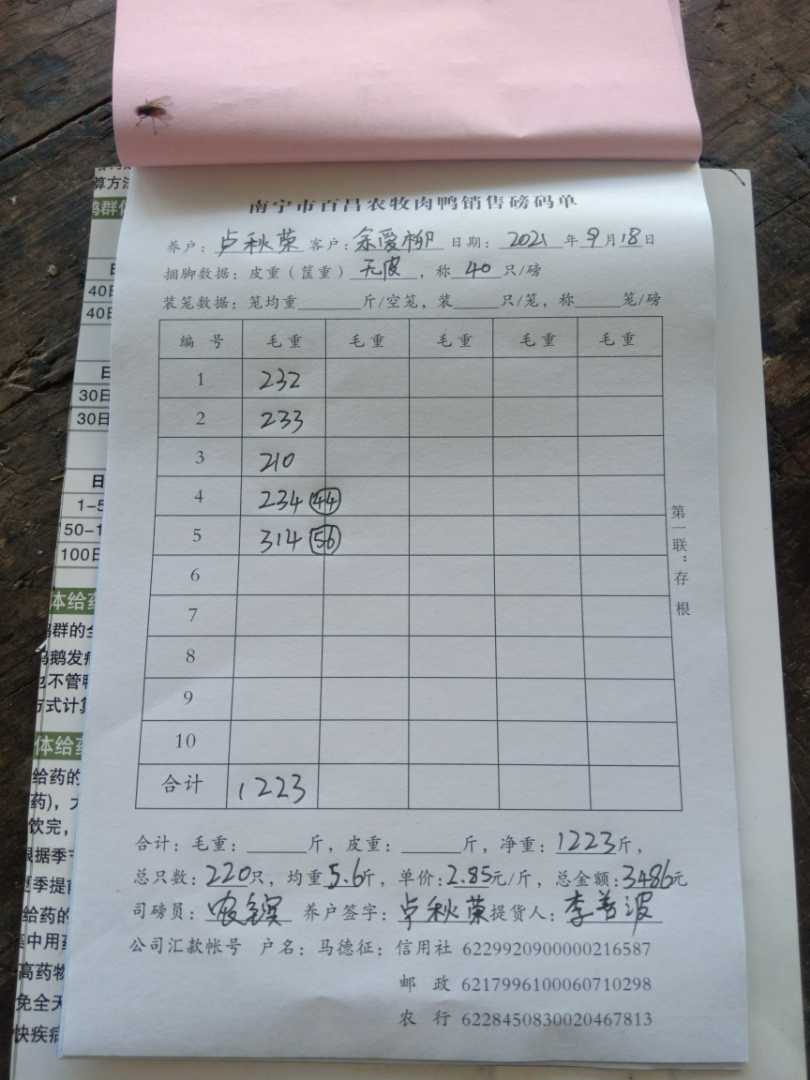 南宁市百昌农牧肉鸭销售磅码单
养户：卢秋荣 客户：余爱柳 日期：2021年9月18日
捆脚数据：皮重（筐重）无皮，称40只/磅
装笼数据：笼均重 斤/空笼，装 只/笼，称 笼/磅
编号 毛重 毛重 毛重 毛重 毛重
1 232
2 233
3 210
4 234 44
5 314 56
6
7
8
9
10
合计 1223
第一联：存根
合计：毛重： 斤，皮重： 斤，净重：1223斤，
总只数：220只，均重5.6斤，单价：2.85元/斤，总金额：3486元
司磅员： 养户签字：卢秋荣 提货人：李善波
公司汇款帐号 户名：马德征：信用社 6229920900000216587
邮政 6217996100060710298
农行 6228450830020467813
算方法
40日
40日
30日
30日
1-5
50-1
100日
体给药
鸭群的全
鸡鹅发病
也不管鸭
方式计算
体给药
给药的
药)，
饮完，
根据季节
夏季提前
给药的
集中用药
高药物
免全天
快疾病